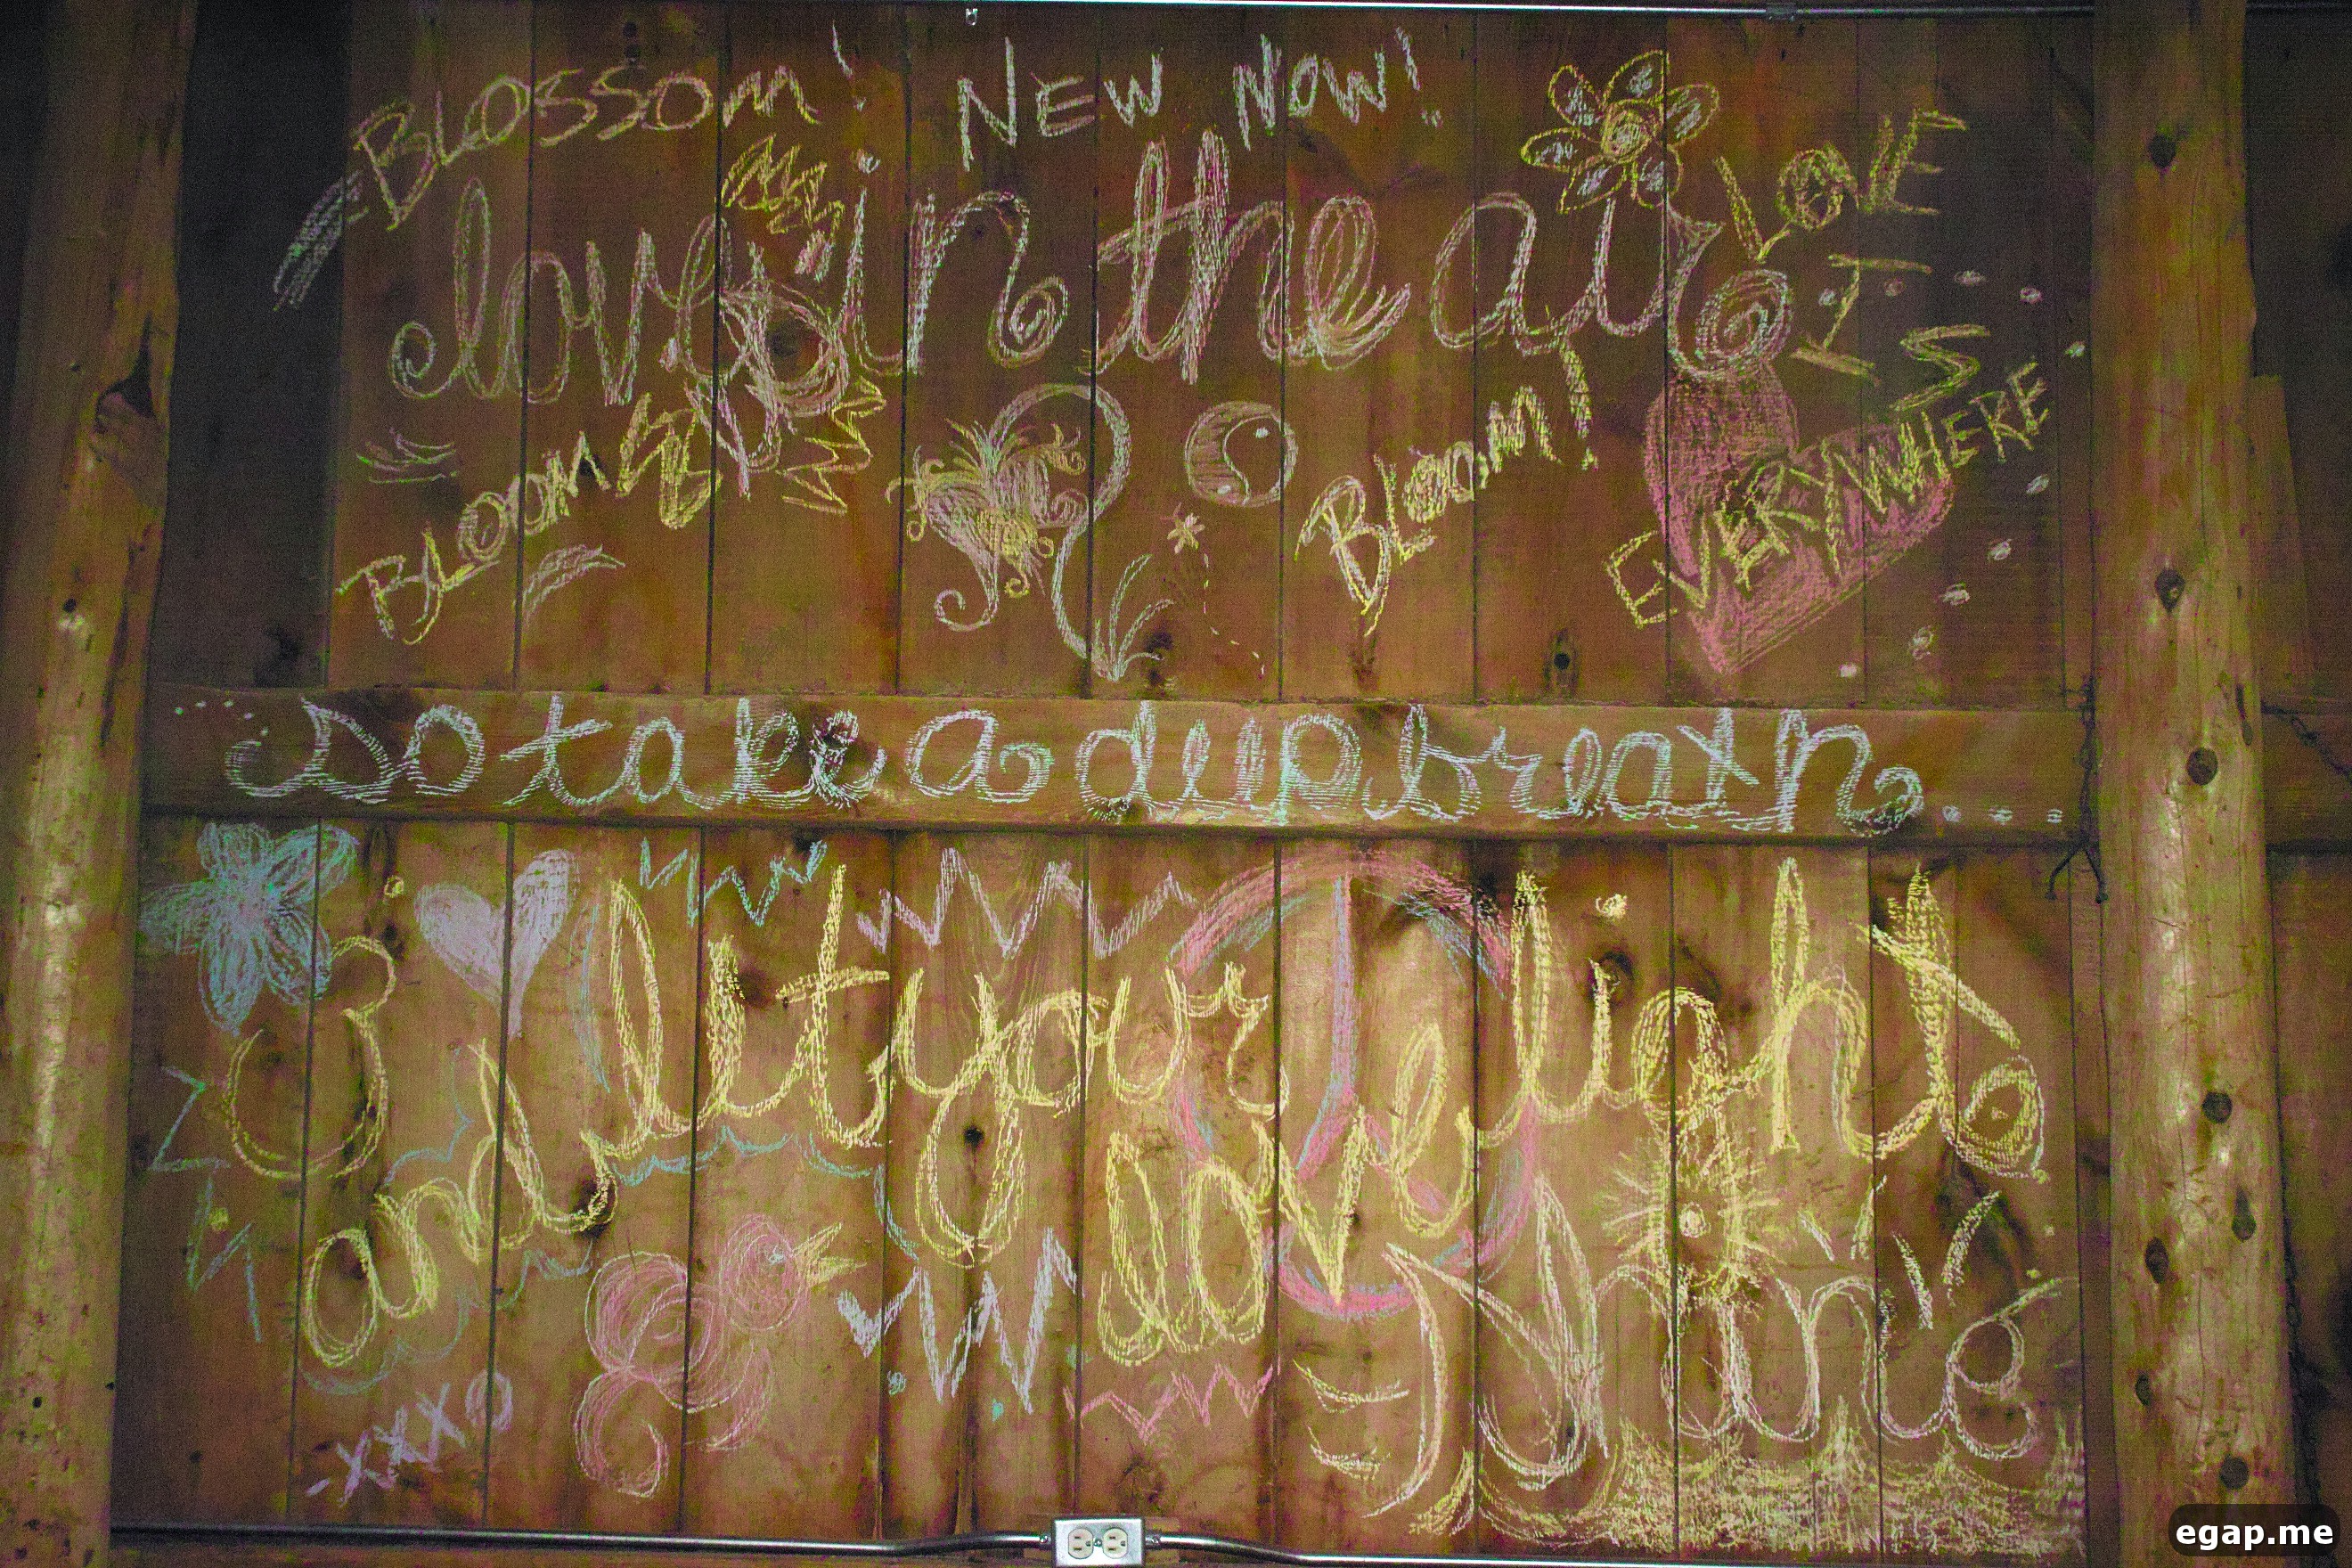 BLOSSOM! NEW NOW!
love is in the air
LOVE
IT
IS
EVERYWHERE
BLOOM
BLOOM!
....so take a deep breath....
and let your love light
shine
-XXXO
egap.me